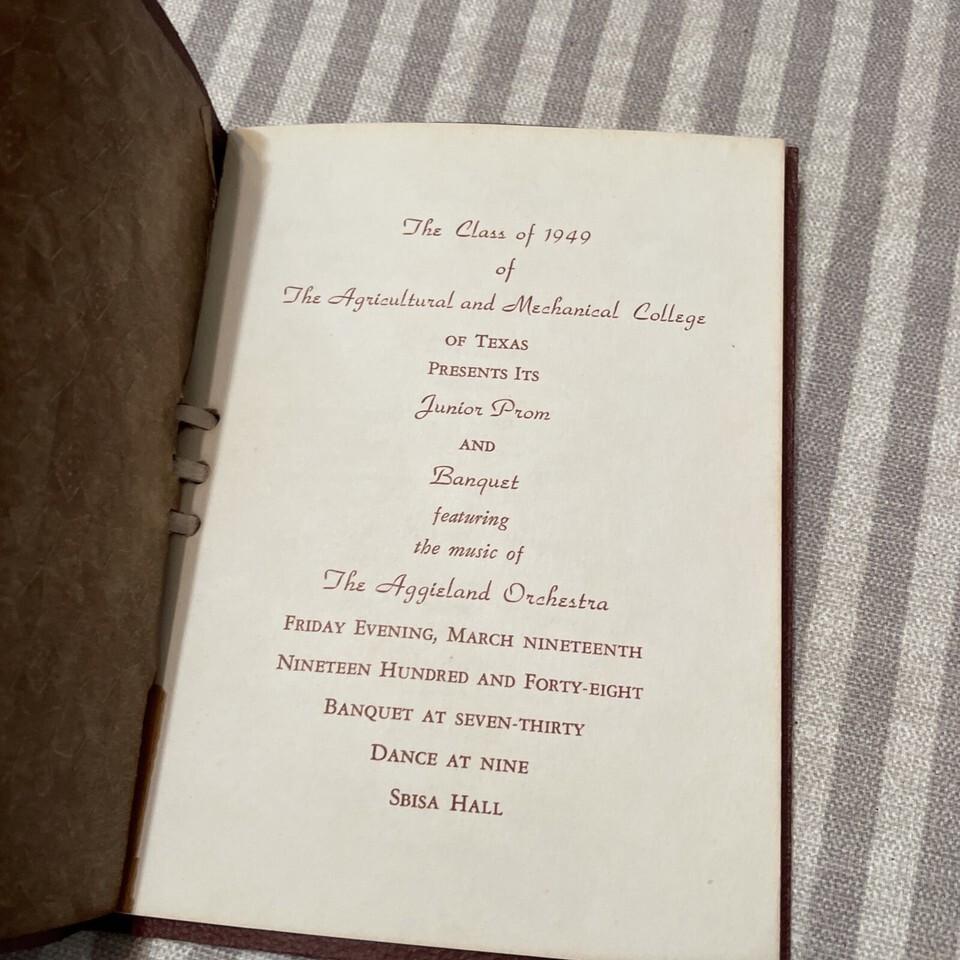 The Class of 1949
of
The Agricultural and Mechanical College
OF TEXAS
PRESENTS ITS
Junior Prom
AND
Banquet
featuring
the music of
The Aggieland Orchestra
FRIDAY EVENING, MARCH NINETEENTH
NINETEEN HUNDRED AND FORTY-EIGHT
BANQUET AT SEVEN-THIRTY
DANCE AT NINE
SBISA HALL